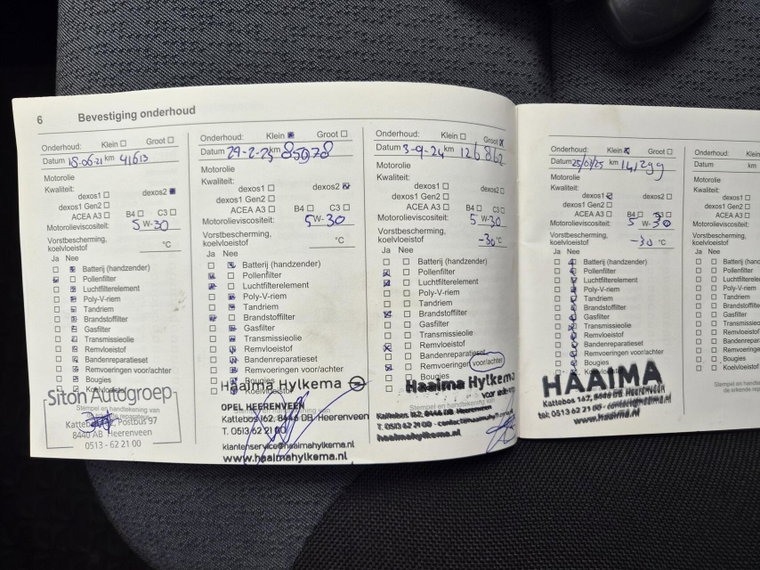 6 Bevestiging onderhoud
Onderhoud: Klein Groot
Datum 18-06-21 km 41613
Motorolie
Kwaliteit:
dexos1 dexos2
dexos1 Gen2
ACEA A3 B4 C3
Motorolieviscositeit: 5W-30
Vorstbescherming, °C
koelvloeistof
Ja Nee
Batterij (handzender)
Pollenfilter
Luchtfilterelement
Poly-V-riem
Tandriem
Brandstoffilter
Gasfilter
Transmissieolie
Remvloeistof
Bandenreparatieset
Remvoeringen voor/achter
Bougies
Koelvloeistof
Siton Autogroep
Stempel en handtekening van
Postbus 97
8440 AB Heerenveen
0513 - 62 21 00
Onderhoud: Klein Groot
Datum km 85078
Motorolie
Kwaliteit:
dexos1 dexos2
dexos1 Gen2
ACEA A3 B4 C3
Motorolieviscositeit: 5W-30
Vorstbescherming, °C
koelvloeistof
Ja Nee
Batterij (handzender)
Pollenfilter
Luchtfilterelement
Poly-V-riem
Tandriem
Brandstoffilter
Gasfilter
Transmissieolie
Remvloeistof
Bandenreparatieset
Remvoeringen voor/achter
Bougies
Koelvloeistof
Haaima Hylkema
OPEL HEERENVEEN
Kattebos 162, 8446 DB Heerenveen
T. 0513 62 21 00
klantenservice@haaimahylkema.nl
www.haaimahylkema.nl
Onderhoud: Klein Groot
Datum 3-9-24 km 126862
Motorolie
Kwaliteit:
dexos1 dexos2
dexos1 Gen2
ACEA A3 B4 C3
Motorolieviscositeit: 5W-30
Vorstbescherming, -30 °C
koelvloeistof
Ja Nee
Batterij (handzender)
Pollenfilter
Luchtfilterelement
Poly-V-riem
Tandriem
Brandstoffilter
Gasfilter
Transmissieolie
Remvloeistof
Bandenreparatieset
Remvoeringen voor/achter
Bougies
Haaima Hylkema
Kattebos 162, 8446 DB Heerenveen
T. 0513 62 21 00
haaimahylkema.nl
Onderhoud: Klein Groot
Datum km
Motorolie
Kwaliteit:
dexos1 dexos2
dexos1 Gen2
ACEA A3 B4 C3
Motorolieviscositeit: 5W-30
Vorstbescherming, -30 °C
koelvloeistof
Ja Nee
Batterij (handzender)
Pollenfilter
Luchtfilterelement
Poly-V-riem
Tandriem
Brandstoffilter
Gasfilter
Transmissieolie
Remvloeistof
Bandenreparatieset
Remvoeringen voor/achter
Bougies
HAAIMA
Kattebos 162, 8446 DB Heerenveen
tel: 0513 62 21 00
www.haaimahylkema.nl
Onderhoud: Klein
Datum km
Motorolie
Kwaliteit:
dexos1
dexos1 Gen2
ACEA A3
Motorolieviscositeit:
Vorstbescherming,
koelvloeistof
Ja Nee
Batterij (handz
Pollenfilter
Luchtfilterelem
Poly-V-riem
Tandriem
Brandstoffilter
Gasfilter
Transmissieolie
Remvloeistof
Bandenreparat
Remvoeringen
Bougies
Koelvloeistof
Stempel en hand
de erkende repa